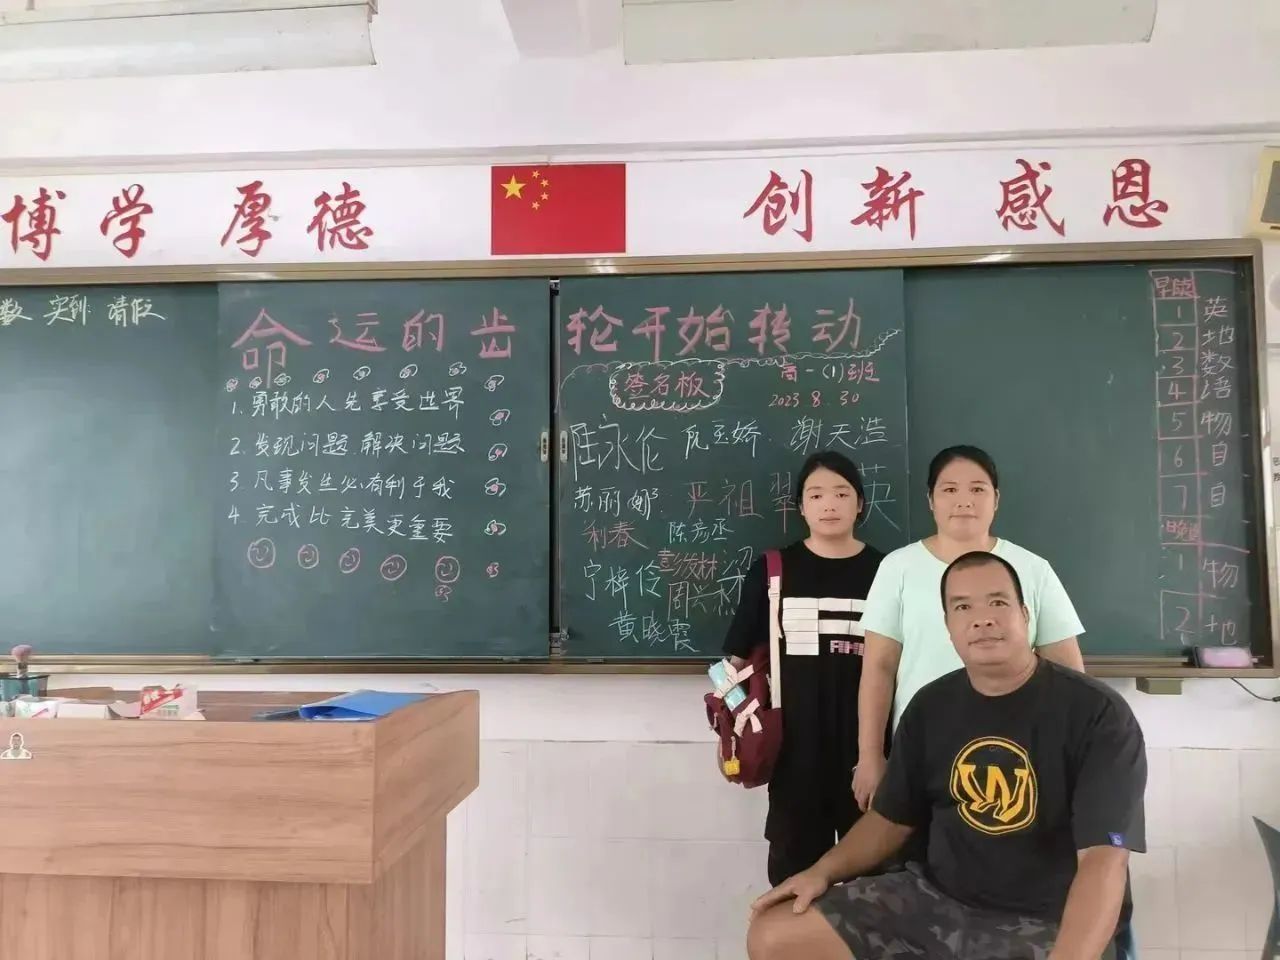 博学 厚德
创新 感恩
数 实到: 请假
命运的齿轮开始转动
1. 勇敢的人先享受世界
2. 发现问题.解决问题
3. 凡事发生必有利于我
4. 完成比完美更重要
签名板
高一(1)班
2023 8.30
陆永伦
谢天浩
苏丽娜
严祖翠
英
利春
陈彦丞
宁梓伶
彭俊林
梁
周兴杰
黄晓霞
早读 英
1 地
2 数
3 语
4
5 物
6 自
7 自
晚修
1 物
2 地
W